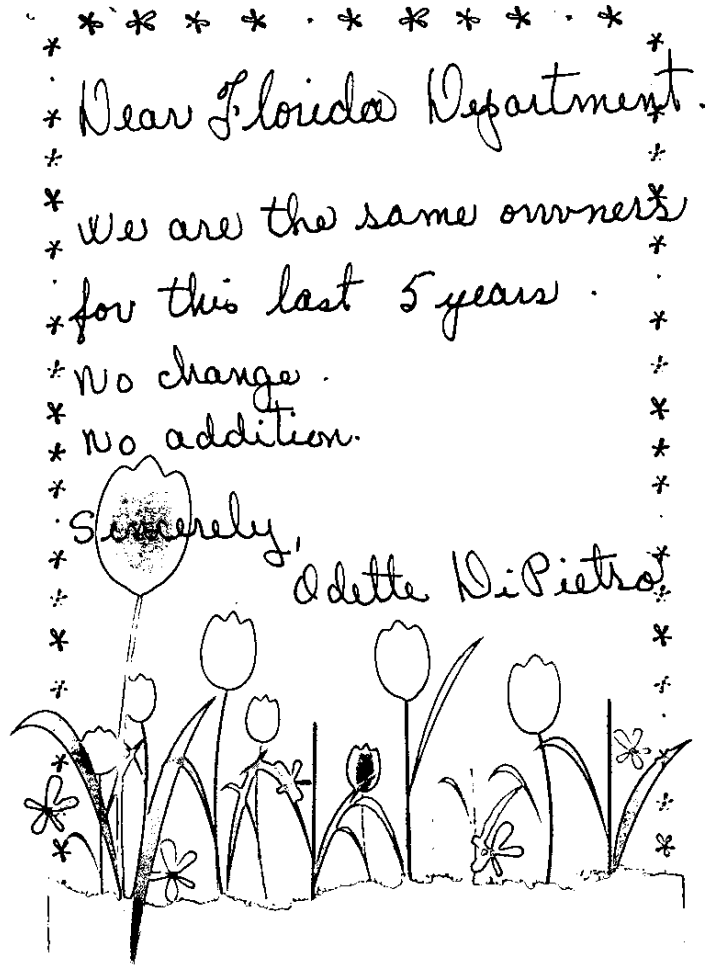 Dear Florida Department.
We are the same owners
for this last 5 years.
No change.
No addition.
Sincerely,
Odette DiPietro